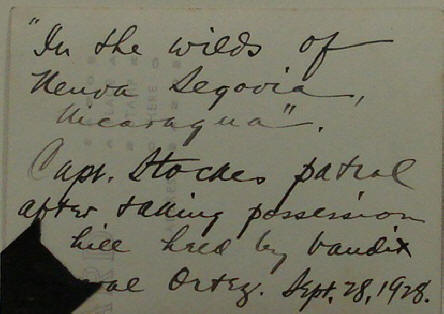 "In the wilds of
Neuva Segovia,
Nicaragua".
Capt. Stockes patrol
after taking possession
hill held by bandit
ral Ortez. Sept. 28, 1928.